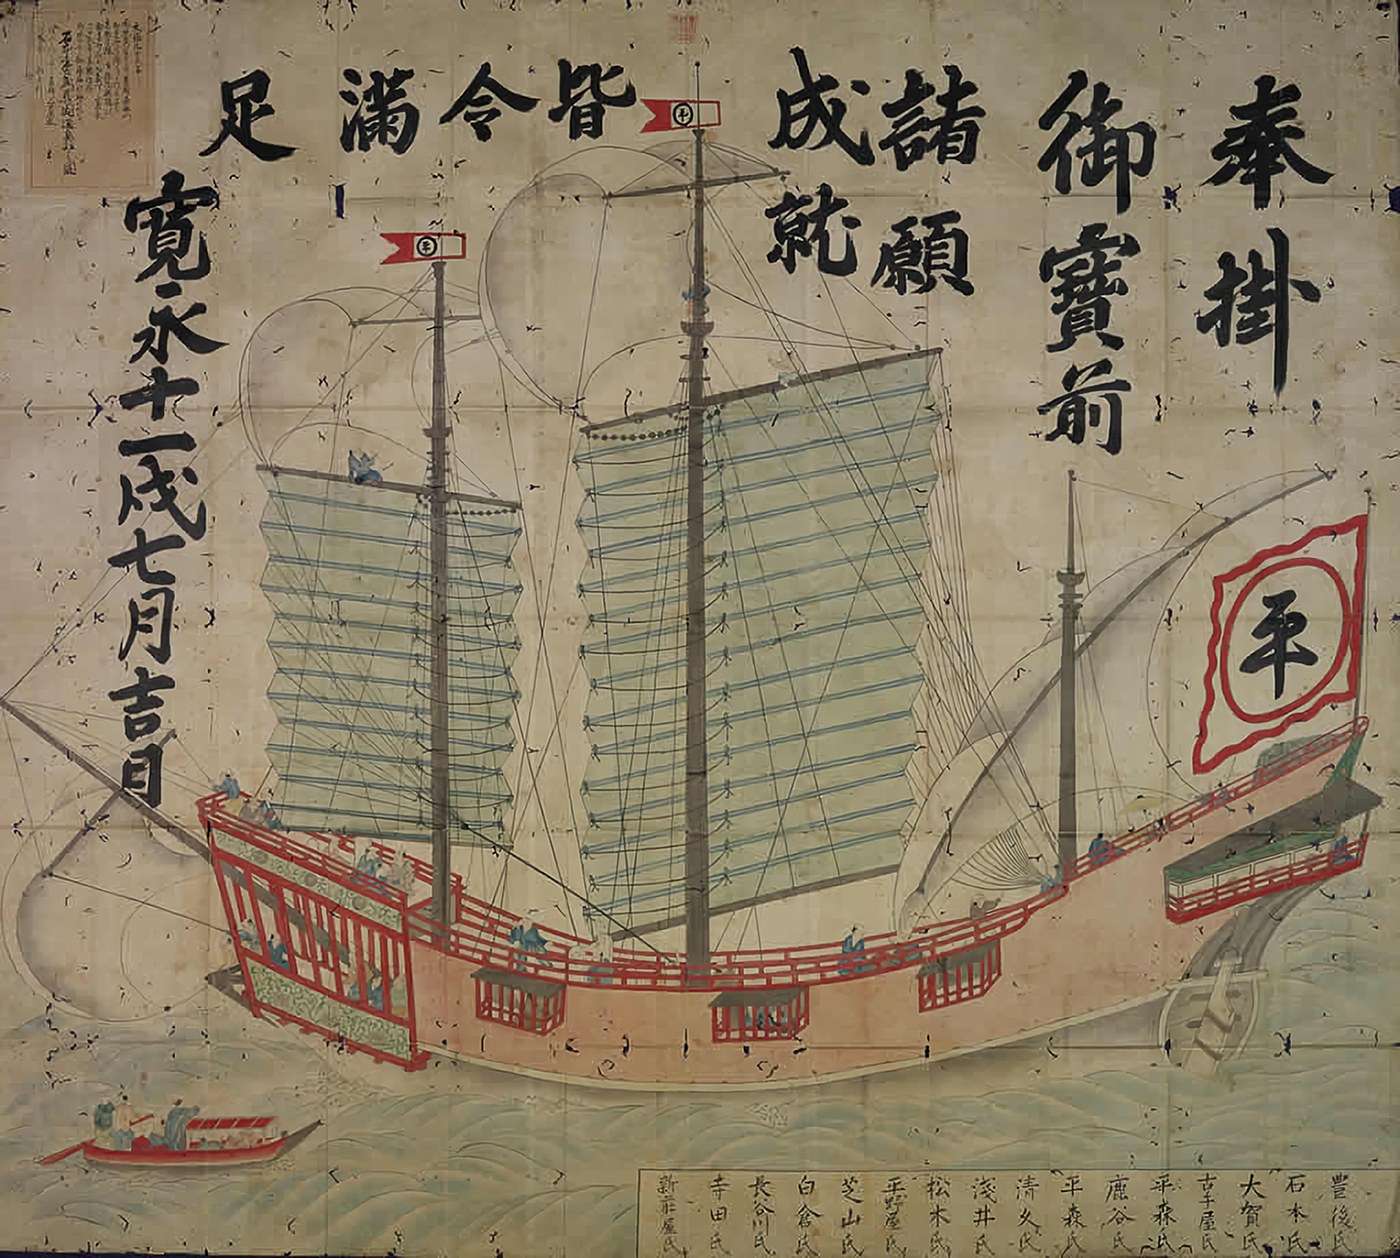 奉掛
御寶前
諸願
成就
皆令満足
寛永十一戌七月吉日
平
平
平
豊後氏
石本氏
大賀氏
古手屋氏
平森氏
鹿谷氏
平森氏
清久氏
淺井氏
松木氏
平野屋氏
芝山氏
白倉氏
長谷川氏
寺田氏
新莊屋氏